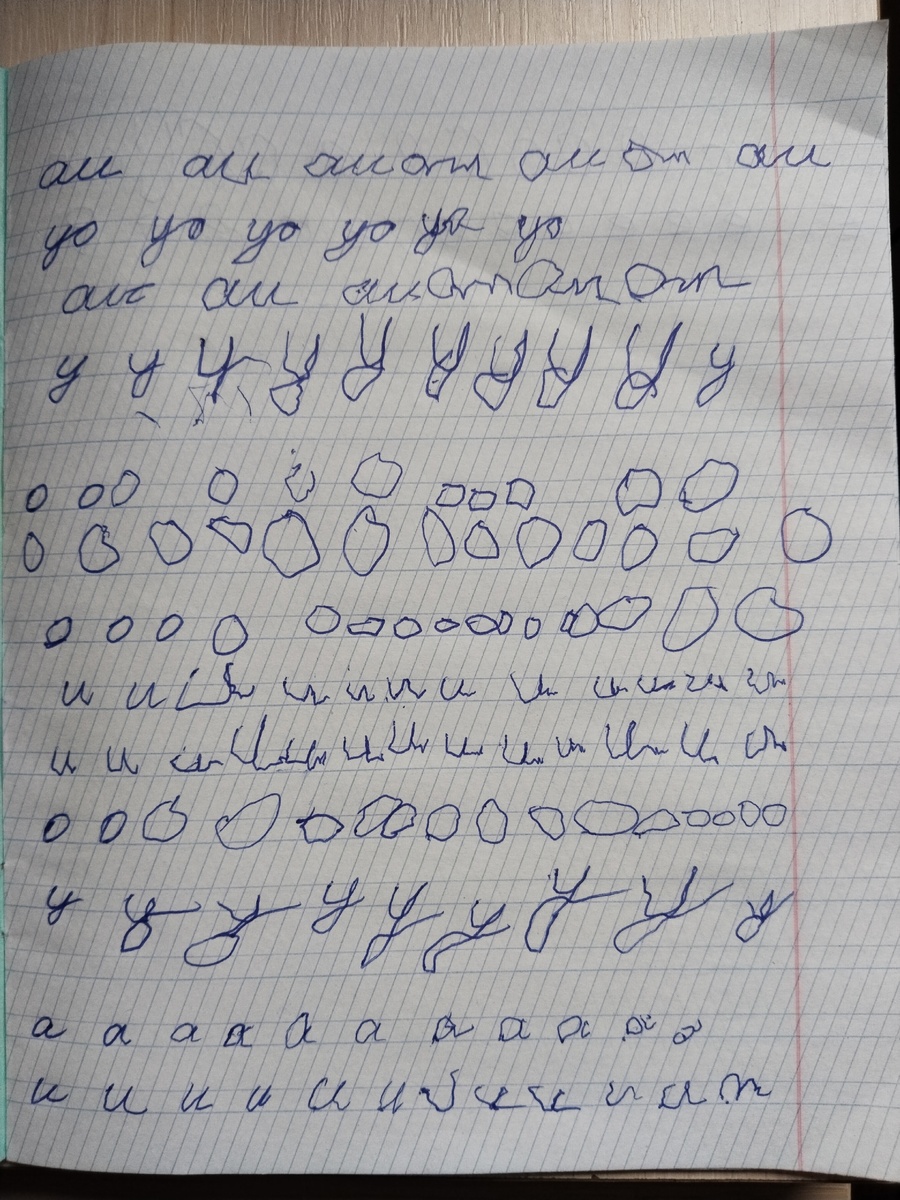 аи аи аи аи аи аи аи
уо уо уо уо уо уо
аи аи аи аи аи аи
у у у у у у у у у у
о о о о о о о о о о о
о о о о о о о о о о о о о
о о о о о о о о о о о о о о о
и и и и и и и и и и и и и
и и и и и и и и и и и и и
о о о о о о о о о о о о о о о о
у у у у у у у у у
а а а а а а а а а а а
и и и и и и и и и и и и